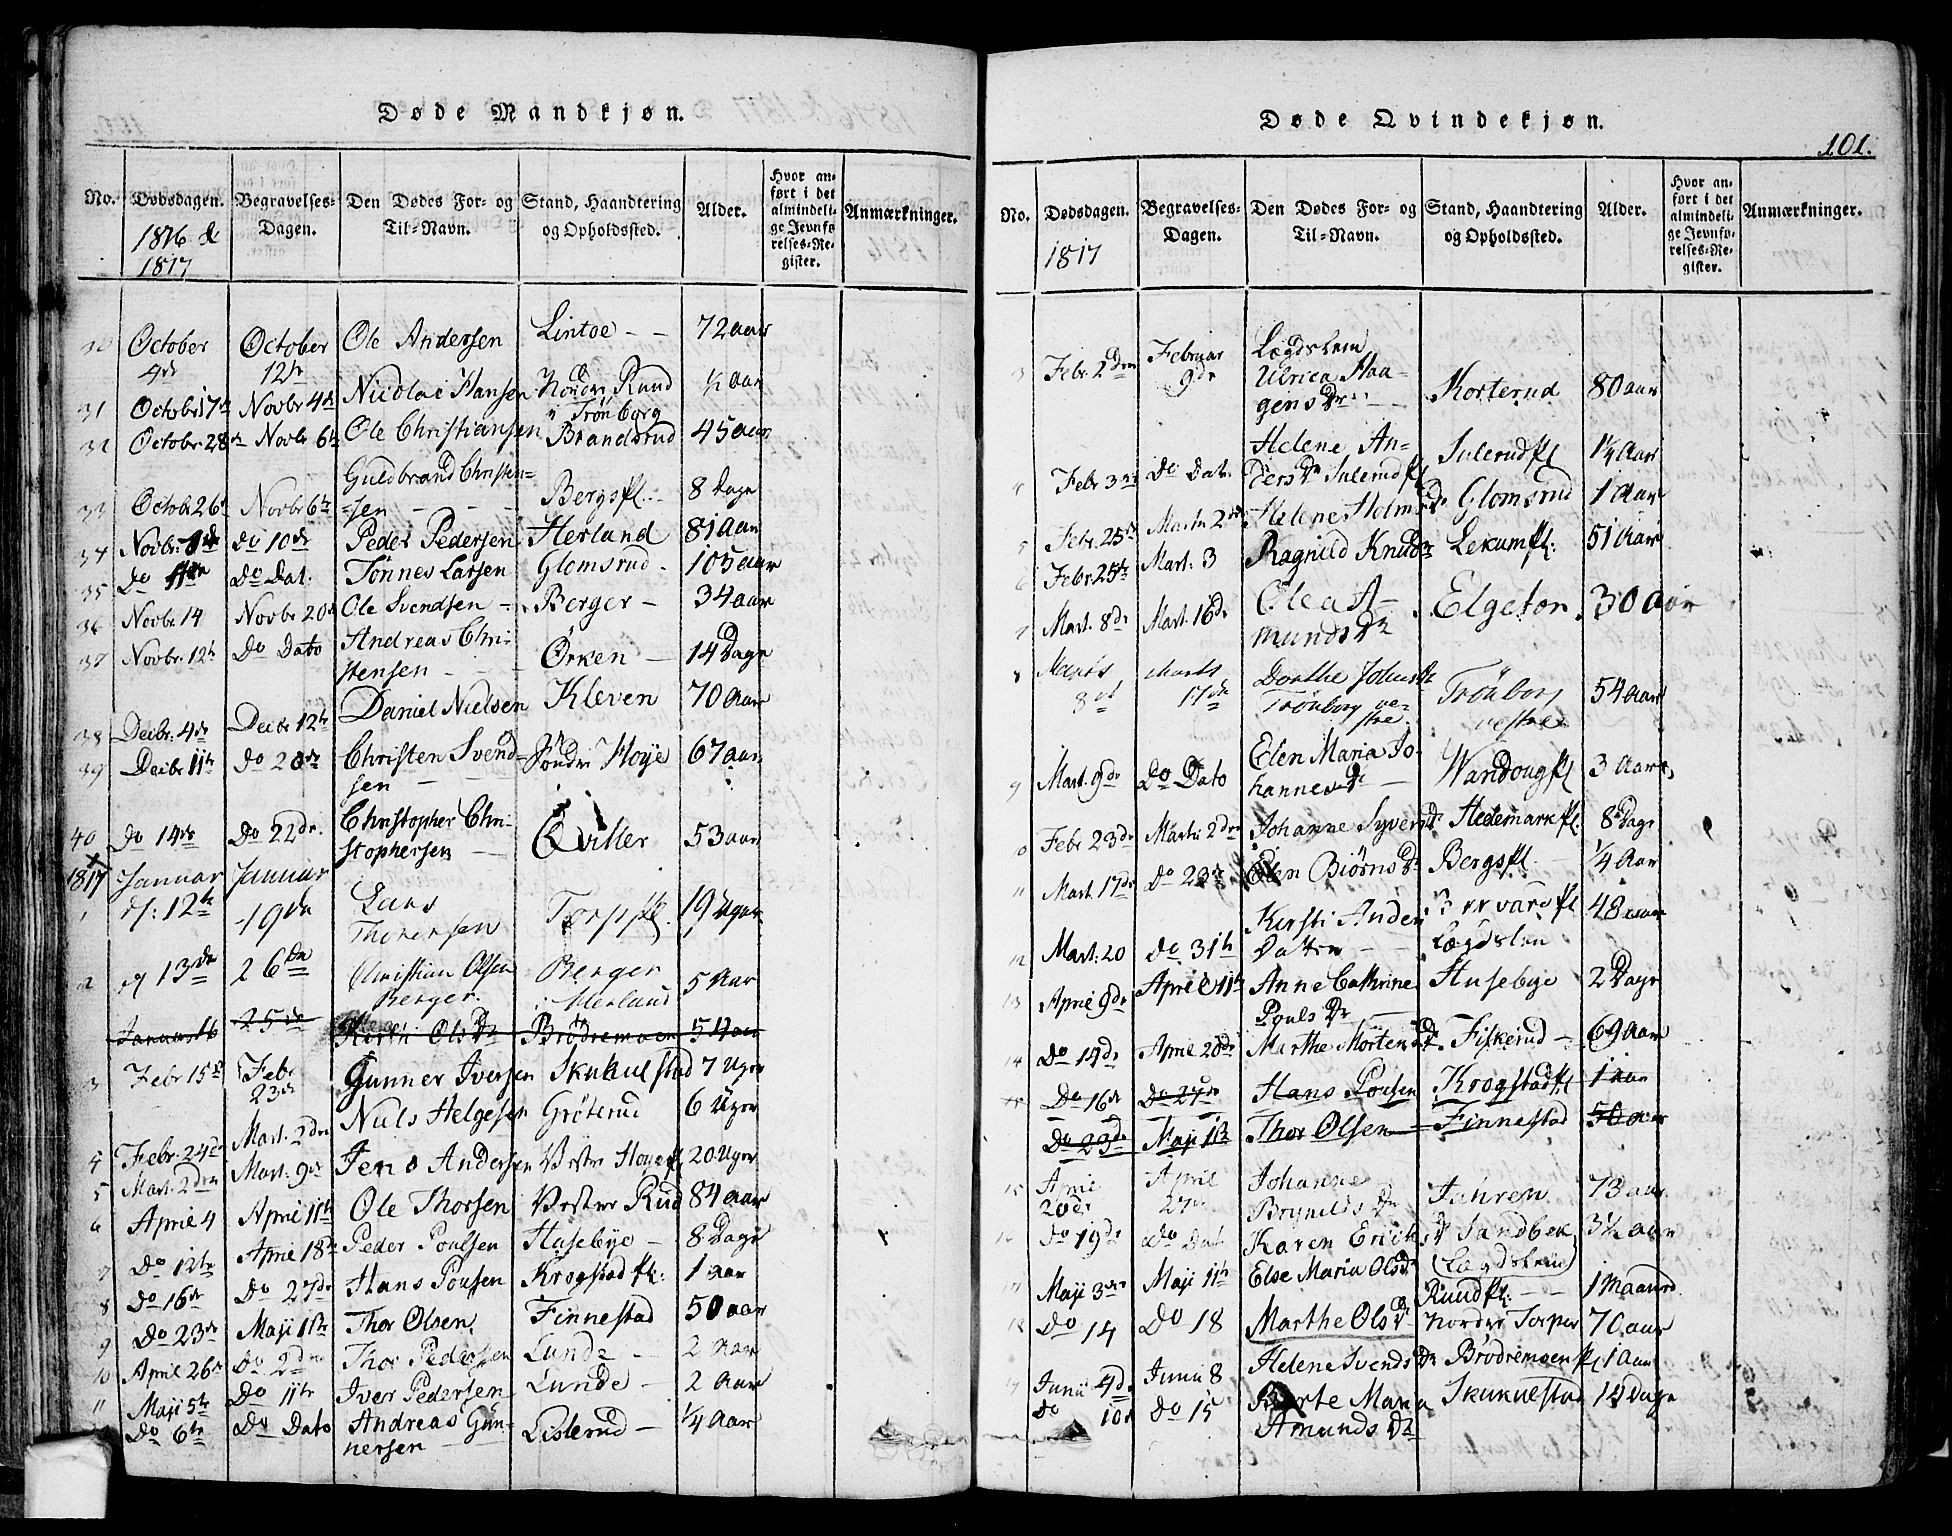 Døde Mandkjøn.
No. Dødsdagen. Begravelses-Dagen. Den Dødes For- og Til-Navn. Stand, Haandtering og Opholdssted. Alder. Hvor anført i det almindelige Jevnførelses-Register. Anmærkninger.
1816 &
1817
30 October 4de October 12te Ole Andersen Lintoe 72 aar
31 Octobr 17de Novbr 4de Nicolai Hansen Nordre Ruud i Trönborg ½ aar
32 October 28de Novbr 6te Ole Christiansen Brandsrud 45 aar
33 Octob: 26de Novbr 6te Guldbrand Christensen Bergspl. 8 Dage
34 Novbr: Do 10de Peder Pedersen Herland 81 aar
35 Do 11te Do Dat: Tönnes Larsen Glomsrud 105 aar
36 Novbr 14 Novbr 20de Ole Svendsen Berger 34 aar
37 Novbr. 12te Do Dato Andreas Christensen Örken 14 Dage
38 Decbr: 4de Decbr 12te Daniel Nielsen Kleven 70 aar
39 Decbr 11te Do 20de Christen Svendsen Söndre Hoye 67 aar
40 Do 14de Do 22de Christopher Christophersen Qviller 53 aar
1817 Januar Januar
1 d: 12te 19de Lars Thoresen Torppl. 19 Uger
2 d 13de 26de Christian Olsen Berger Berger i Herland 5 Aar
Januar 16 25de Olsdr Brödremoen 51 aar
3 Febr 15de Febr 23de Gunner Iversen Skukulstad 7 Uger
4 Febr. 24de Mart. 2den Niels Helgesen Gröterud 6 Uger
5 Mart. 2den Mart: 9de Jens Andersen Vestre Hoyepl 20 Uger
6 April 4 April 11te Ole Thorsen Vestre Rud 84 aar
7 Do 12te April 18de Peder Poulsen Husebye 8 Dage
8 Do 16de Do 27de Hans Poulsen Krogstad pl: 1 aar
9 Do 23de Maji 1ste Thor Olsen Finnestad 50 aar
10 April 26de Do 2den Thor Pedersen Lunde 2 Aar
11 Maji 5te Do 11te Iver Pedersen Lunde 2 Aar
Do 6te Do Dato Andreas Gunnersen Lislerud ¼ Aar
Døde Qvindekjøn.
101.
No. Dødsdagen. Begravelses-Dagen. Den Dødes For- og Til-Navn. Stand, Haandtering og Opholdssted. Alder. Hvor anført i det almindelige Jevnførelses-Register. Anmærkninger.
1817
3 Febr. 2den Februar 9de Lægdslem Ulrica Haagensdr Korterud 80 aar
4 Febr 3die Do Dat. Helene Andersdr Sulerudpl Sulerudpl 1¼ Aar
5 Febr. 25de Martii 2den Helene Holmsdr Glomsrud 1 Aar
6 Febr. 25de Mart: 3 Ragnild Knudsdr Lekumpl: 51 Aar
7 Mart. 8de Mart. 16de Olea Amundsdr Elgeton 30 Aar
8 Marts 8de Marts 17de Dorthe Johnsdr Trönborg vestre Trönborg vestre 54 aar
9 Mart. 9de Do Dato Elen Maria Johannesdr Wandougpl 3 Aar
10 Febr 23de Martii 2den Johanne Syversdr Hedemarkpl. 8 Dage
11 Mart 17de Do 23de Elen Biörnsdr Bergspl. ¼ Aar
12 Mart: 20 Do 31te Kirsti Andersdatter Lægdslem 48 aar
13 April 9de April 11te Anne Cathrine Poulsdr Husebye 2 Dage
14 Do 14de April 20de Marthe Mortensdr Fiskerud 69 aar
Do 16de Do 27de Hans Poulsen Krogstadpl 1 aar
Do 23de Maji 1ste Thor Olsen Finnestad 50 aar
15 April 20de April 27de Johanne Brynildsdr Jahren 73 aar
16 Do 19de Do Dat Karen Ericksdr Sandbek (Lægdslem) 3½ aar
17 Maji 3die Maji 11te Else Maria Olsdr Ruudpl: 1 Maaned
18 Do 14 Do 18 Marthe Olsdr Nordre Torper 70 aar
19 Junii 4de Junii 8 Helene Svendsdr Brödremoen pl 1 Aar
Do 10de Do 15 Berte Maria Amundsdr Skukuelstad 14 Dage